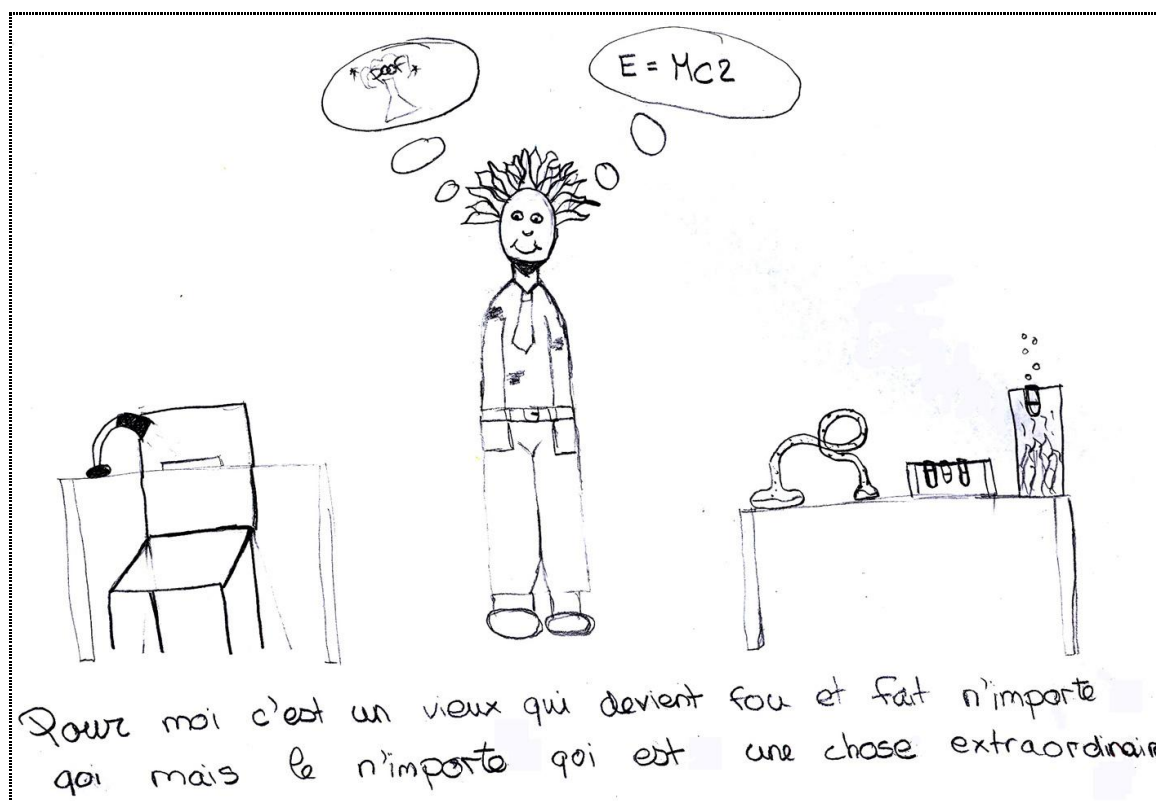 *POOF*
E = MC2
Pour moi c'est un vieux qui devient fou et fait n'importe
qoi mais le n'importe qoi est une chose extraordinair